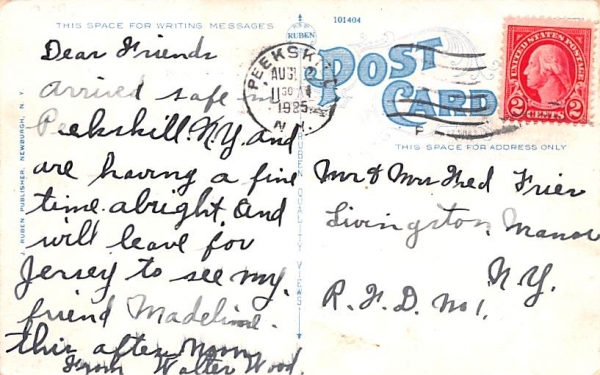 THIS SPACE FOR WRITING MESSAGES
101404
RUBEN
POST
CARD
THIS SPACE FOR ADDRESS ONLY
UNITED STATES POSTAGE
2 CENTS 2
PEEKSKILL
AUG
11 30 AM
1925
N.Y.
Dear Friends
arrived safe in
Peekskill N.Y. and
are having a fine
time alright. And
will leave for
Jersey to see my
friend Madeline.
this after noon
From Walter Wood.
Mr & Mrs Fred Frier
Livingston Manor
N.Y.
R. F. D. No 1.
J. RUBEN PUBLISHER, NEWBURGH, N. Y.
RUBEN QUALITY VIEWS